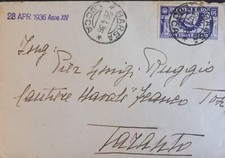 28 APR 1936 Anno XIV
BARDIA
Ing.
Pier Luigi Ruggio
Cantiere Navale "Franco Tosi
Taranto